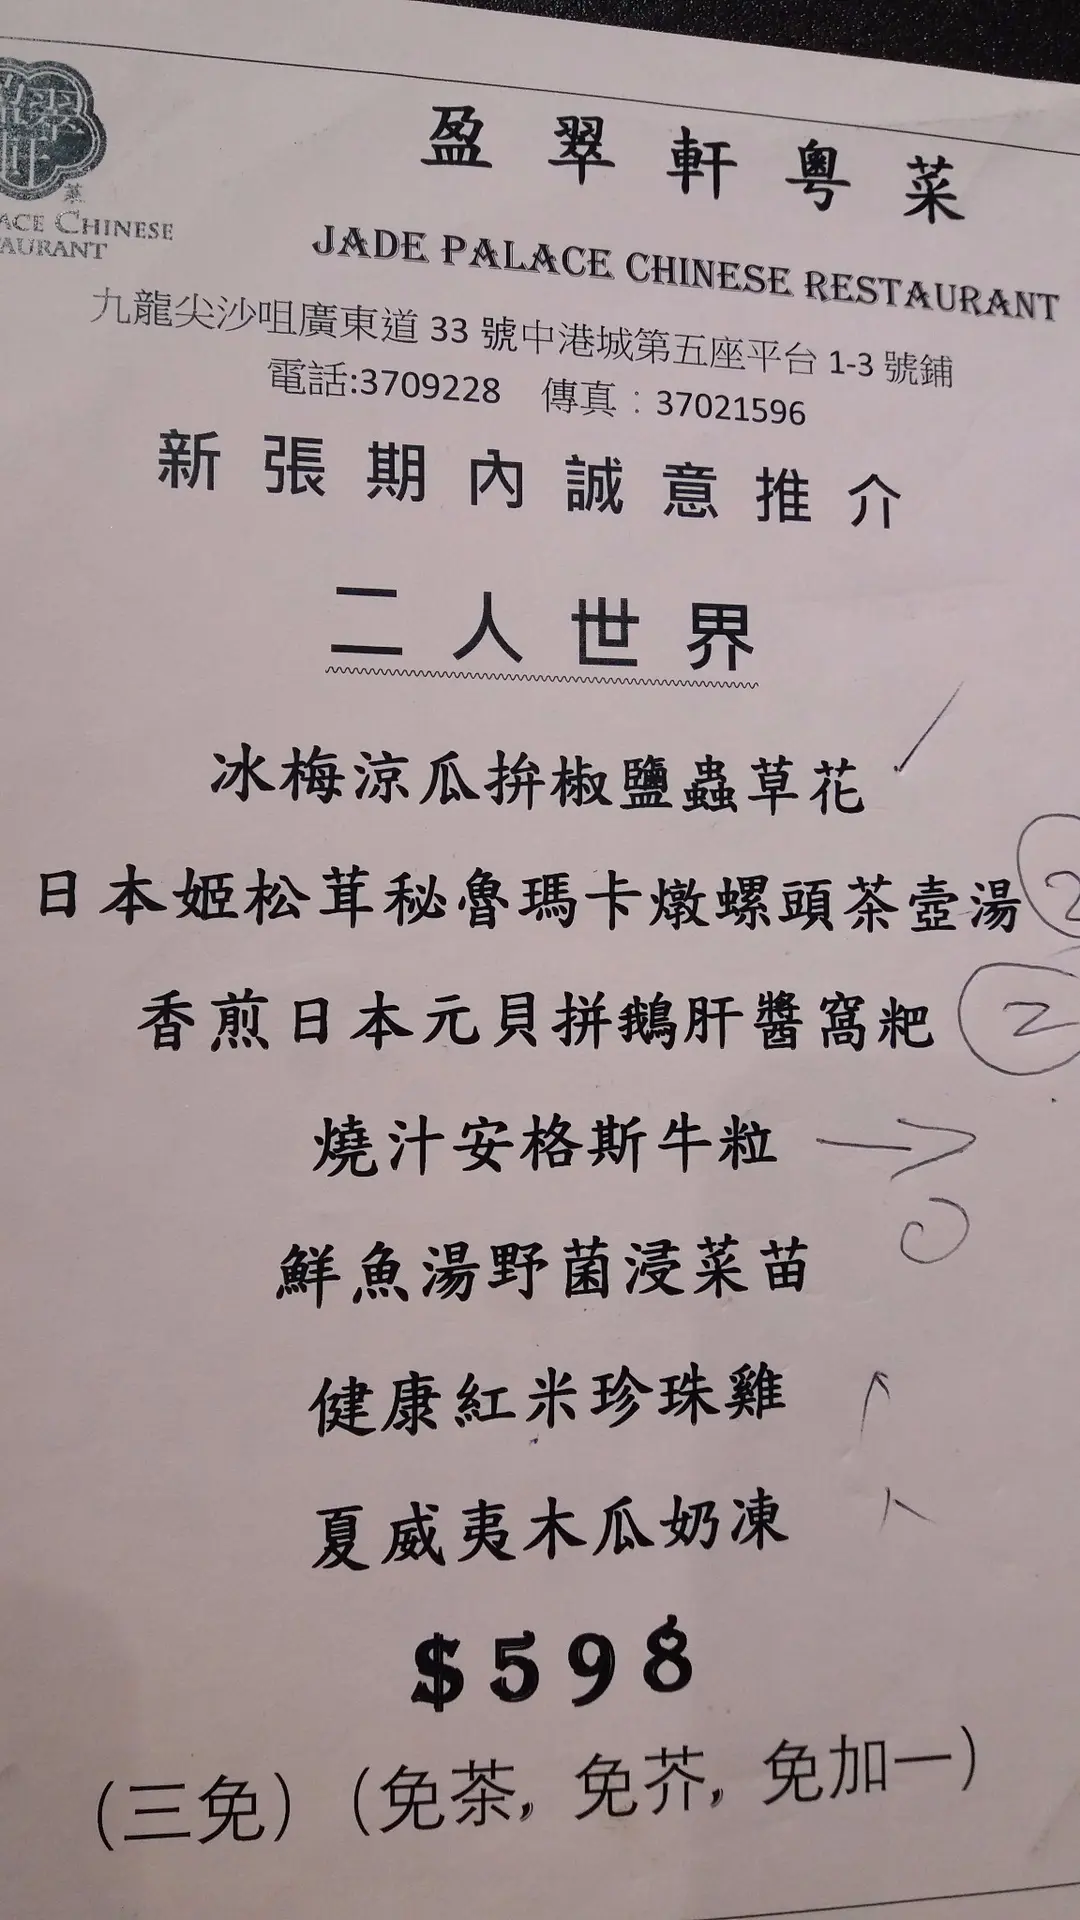 盈翠軒粵菜
JADE PALACE CHINESE RESTAURANT
ACE CHINESE
AURANT
九龍尖沙咀廣東道 33 號中港城第五座平台 1-3 號鋪
電話:3709228 傳真：37021596
新張期內誠意推介
二人世界
冰梅涼瓜拚椒鹽蟲草花
日本姬松茸秘魯瑪卡燉螺頭茶壺湯 2
香煎日本元貝拼鵝肝醬窩粑 2
燒汁安格斯牛粒
鮮魚湯野菌浸菜苗
健康紅米珍珠雞
夏威夷木瓜奶凍
$598
(三免) (免茶, 免芥, 免加一)